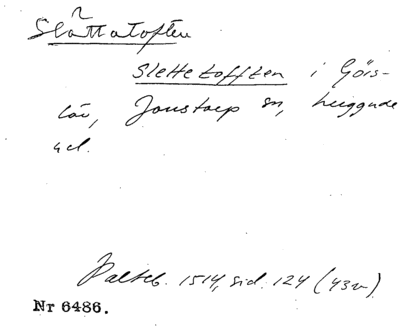 Slåttatoften
Slettetofften i Görs-
löv, Jonstorp sn, Luggude
hd.
Palteb. 1514, sid. 124 (43v).
Nr 6486.